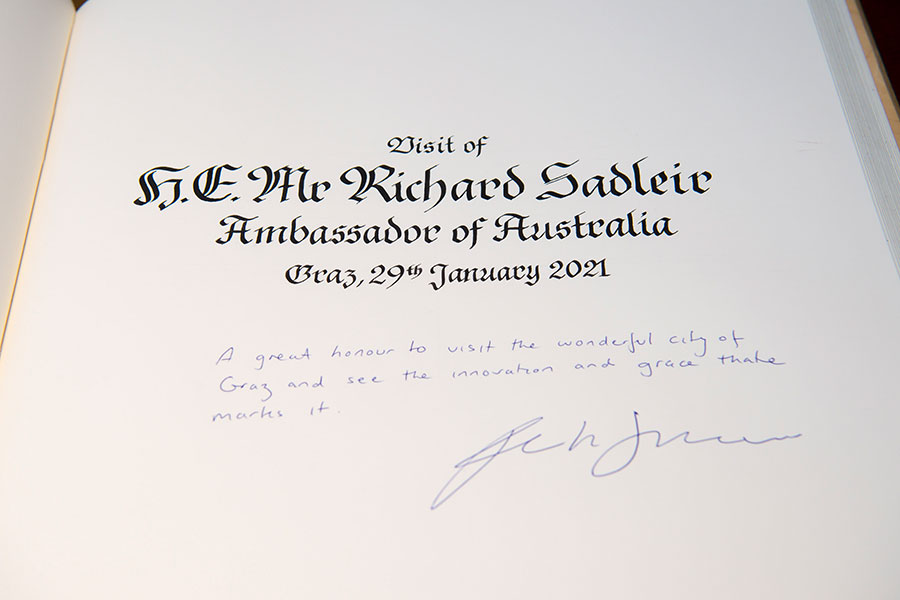 Visit of
H.E. Mr Richard Sadleir
Ambassador of Australia
Graz, 29th January 2021
A great honour to visit the wonderful city of
Graz and see the innovation and grace that
marks it.